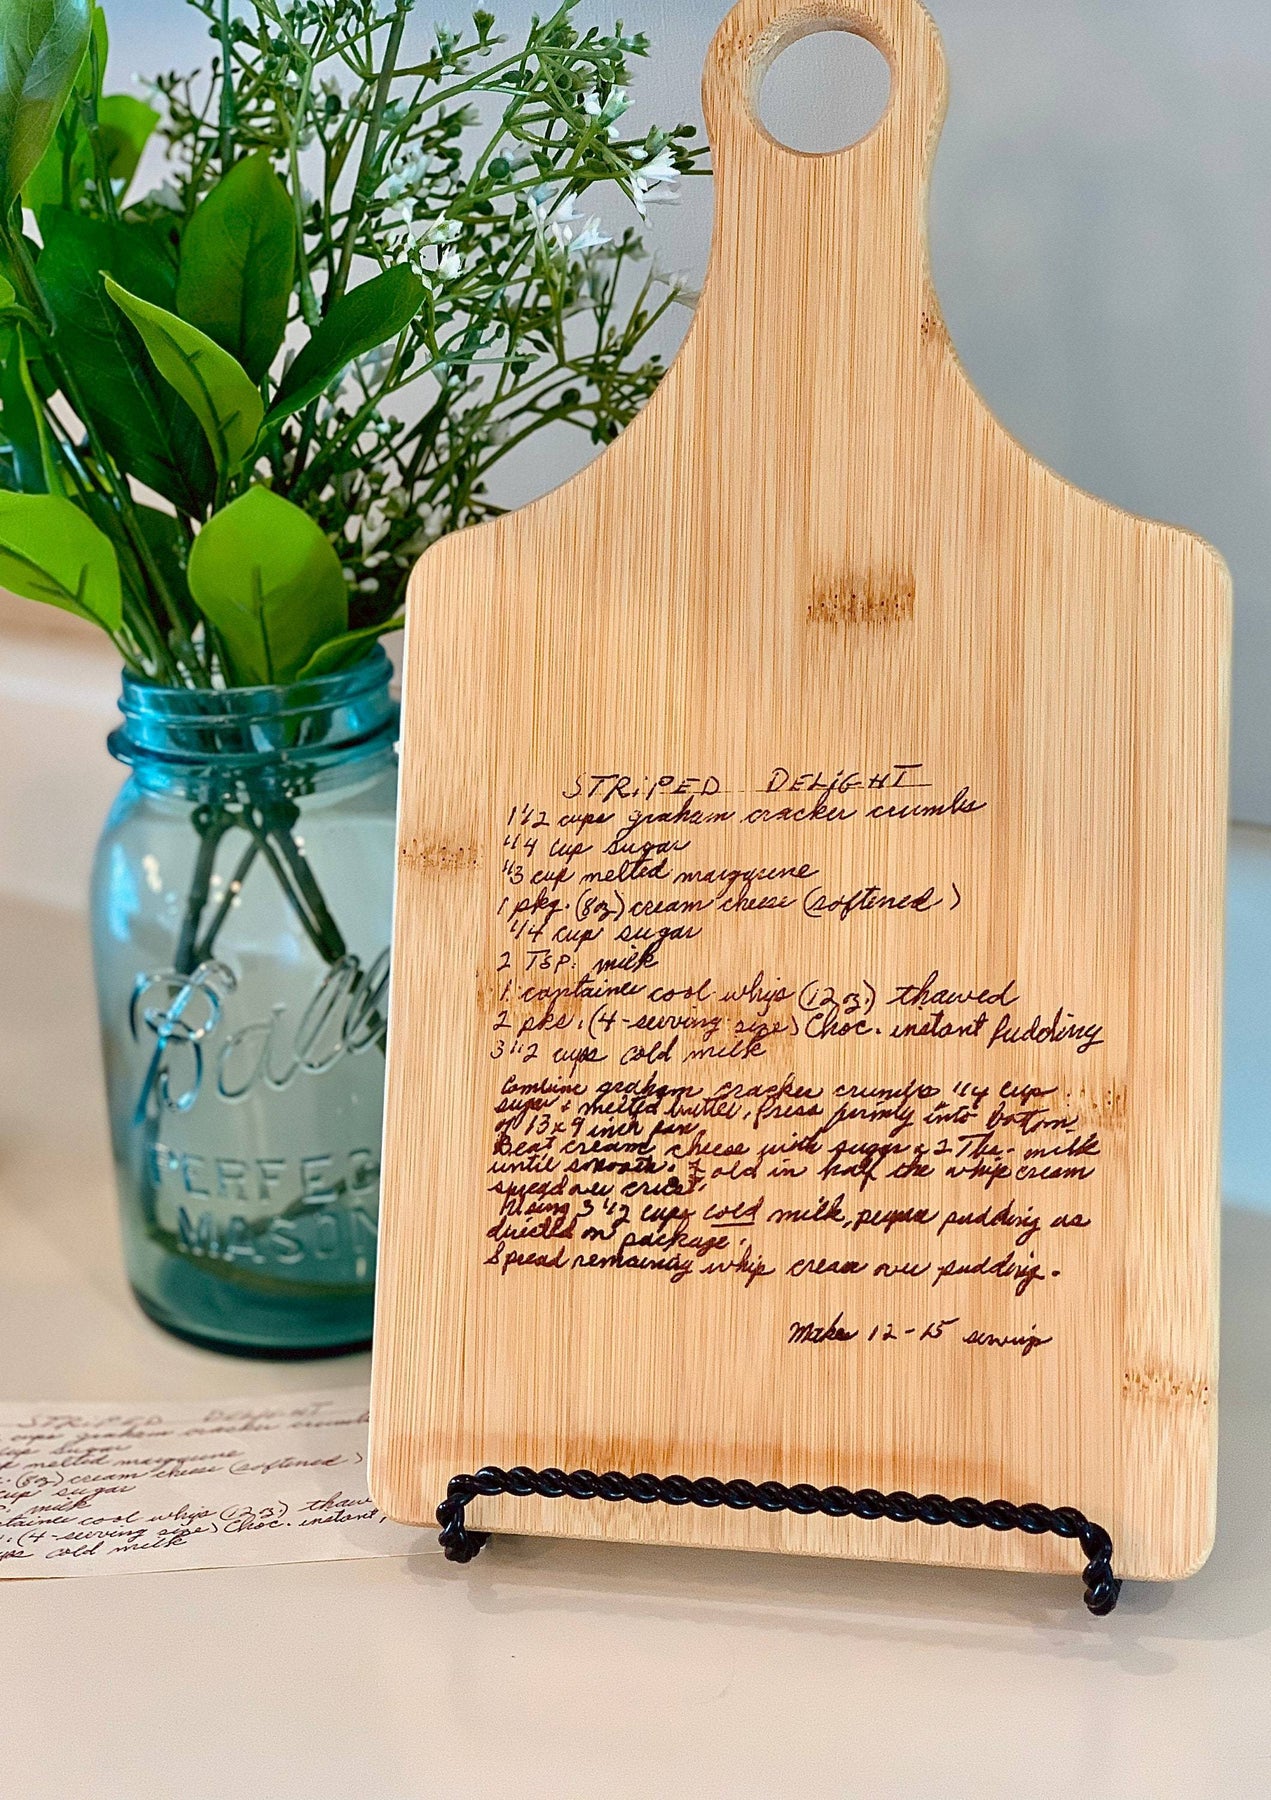 STRIPED DELIGHT
1 1/2 cups graham cracker crumbs
1/4 cup sugar
1/3 cup melted margarine
1 pkg. (8oz) cream cheese (softened)
1/4 cup sugar
2 TSP. milk
1 container cool whip (12 oz.) thawed
2 pks. (4-serving size) Choc. instant pudding
3 1/2 cups cold milk
Combine graham cracker crumbs 1/4 cup
sugar + melted butter, Press firmly into bottom
of 13x9 inch pan
Beat cream cheese with sugar & 2 Tbs. milk
until smooth. Fold in half the whip cream
spread over crust.
Using 3 1/2 cups cold milk, prepare pudding as
directed on package.
Spread remaining whip cream over pudding.
Makes 12-15 servings
Ball
PERFEC
MASON
STRIPED DELIGHT
cups graham cracker crumbs
cup sugar
melted margarine
(8oz) cream cheese (softened)
cup sugar
milk
container cool whip (12 oz) thaw
(4-serving size) Choc. instant
cups cold milk